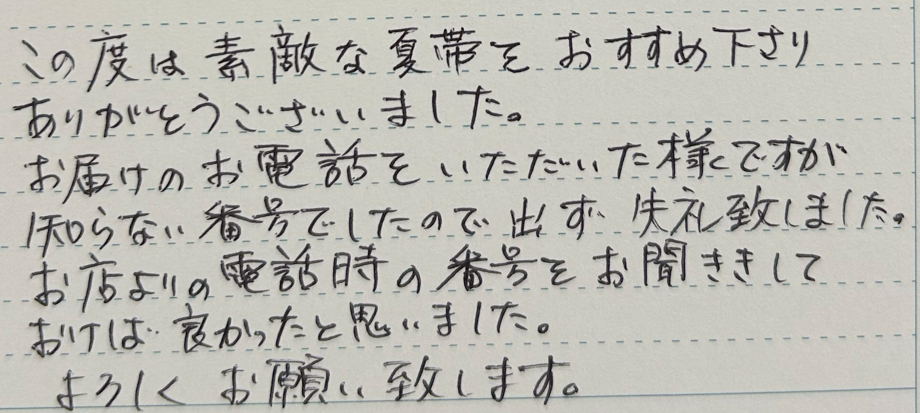 この度は素敵な夏帯をおすすめ下さり
ありがとうございました。
お届けのお電話をいただいた様ですが
知らない番号でしたので出ず失礼致しました。
お店よりの電話時の番号をお聞ききして
おけば良かったと思いました。
よろしくお願い致します。